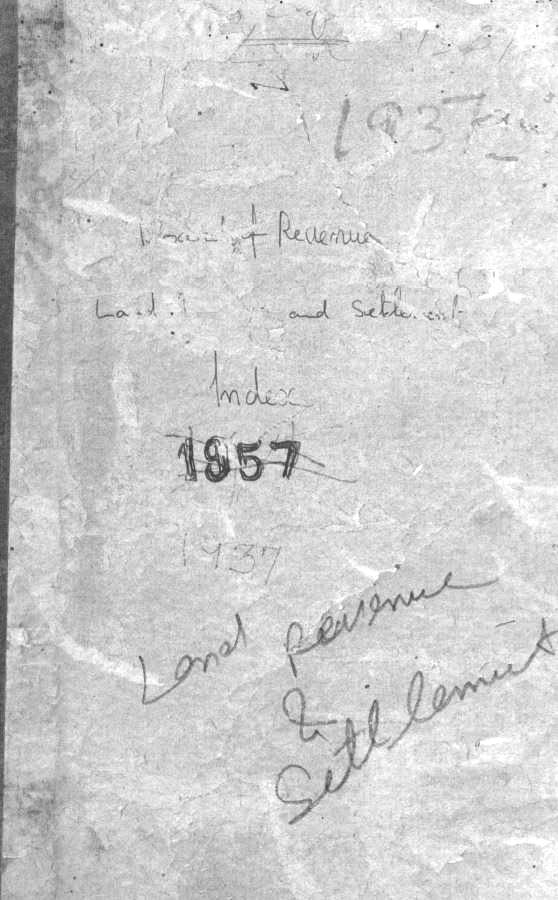 1937
of Revenue
Land and Settlement
Index
1957
1937
Land Revenue
&
Settlement